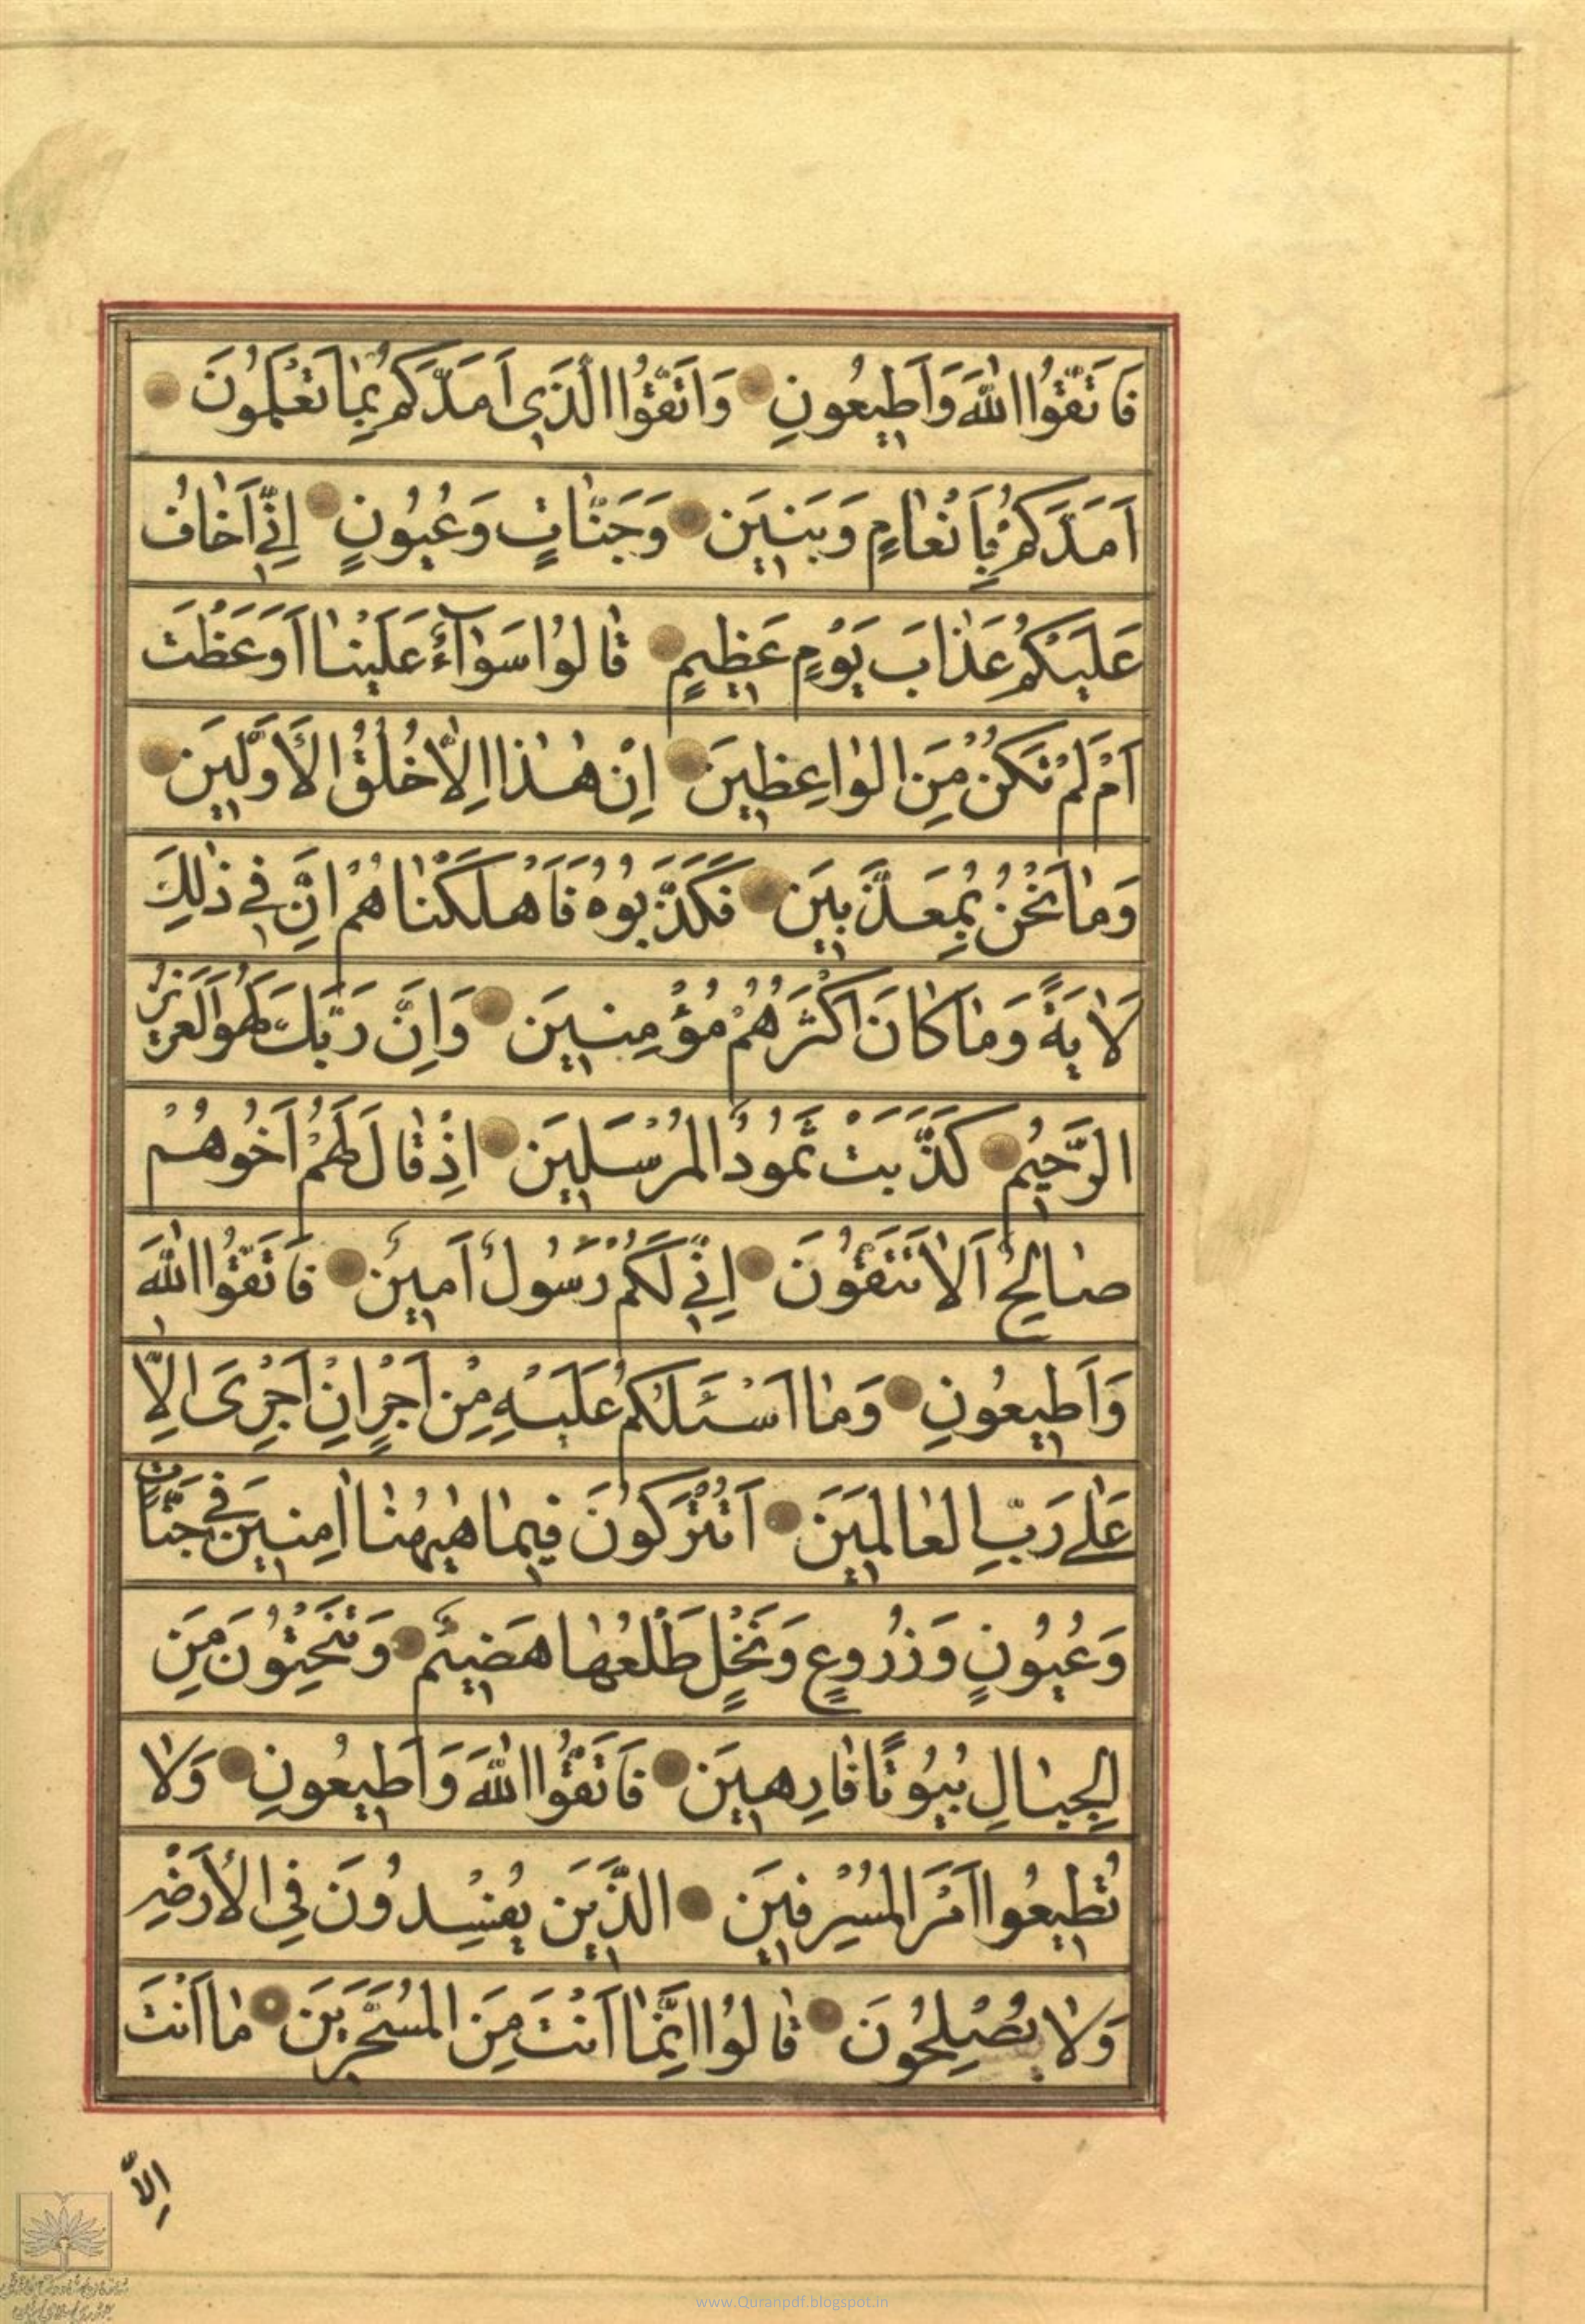 فَاتَّقُوا اللّٰهَ وَاَطِيعُونِ وَاتَّقُوا الَّذِي اَمَدَّكُمْ بِمٰا تَعْلَمُونَ
اَمَدَّكُمْ بِاَنْعٰامٍ وَبَنِينَ وَجَنّٰاتٍ وَعُيُونٍ اِنِّي اَخٰافُ
عَلَيْكُمْ عَذٰابَ يَوْمٍ عَظِيمٍ قٰالُوا سَوٰآءٌ عَلَيْنٰا اَوَعَظْتَ
اَمْ لَمْ تَكُنْ مِنَ الْوٰاعِظِينَ اِنْ هٰذٰا اِلّٰا خُلُقُ الْاَوَّلِينَ
وَمٰا نَحْنُ بِمُعَذَّبِينَ فَكَذَّبُوهُ فَاَهْلَكْنٰاهُمْ اِنَّ فِي ذٰلِكَ
لَاٰيَةً وَمٰا كٰانَ اَكْثَرُهُمْ مُؤْمِنِينَ وَاِنَّ رَبَّكَ لَهُوَ الْعَزِيزُ
الرَّحِيمُ كَذَّبَتْ ثَمُودُ الْمُرْسَلِينَ اِذْ قٰالَ لَهُمْ اَخُوهُمْ
صٰالِحٌ اَلٰا تَتَّقُونَ اِنِّي لَكُمْ رَسُولٌ اَمِينٌ فَاتَّقُوا اللّٰهَ
وَاَطِيعُونِ وَمٰا اَسْئَلُكُمْ عَلَيْهِ مِنْ اَجْرٍ اِنْ اَجْرِيَ اِلّٰا
عَلٰى رَبِّ الْعٰالَمِينَ اَتُتْرَكُونَ فِيمٰا هٰيهُنٰا اٰمِنِينَ فِي جَنّٰاتٍ
وَعُيُونٍ وَزُرُوعٍ وَنَخْلٍ طَلْعُهٰا هَضِيمٌ وَتَنْحِتُونَ مِنَ
الْجِبٰالِ بُيُوتًا فٰارِهِينَ فَاتَّقُوا اللّٰهَ وَاَطِيعُونِ وَلٰا
تُطِيعُوا اَمْرَ الْمُسْرِفِينَ الَّذِينَ يُفْسِدُونَ فِي الْاَرْضِ
وَلٰا يُصْلِحُونَ قٰالُوا اِنَّمٰا اَنْتَ مِنَ الْمُسَحَّرِينَ مٰا اَنْتَ
اِلّٰا
www.Quranpdf.blogspot.in